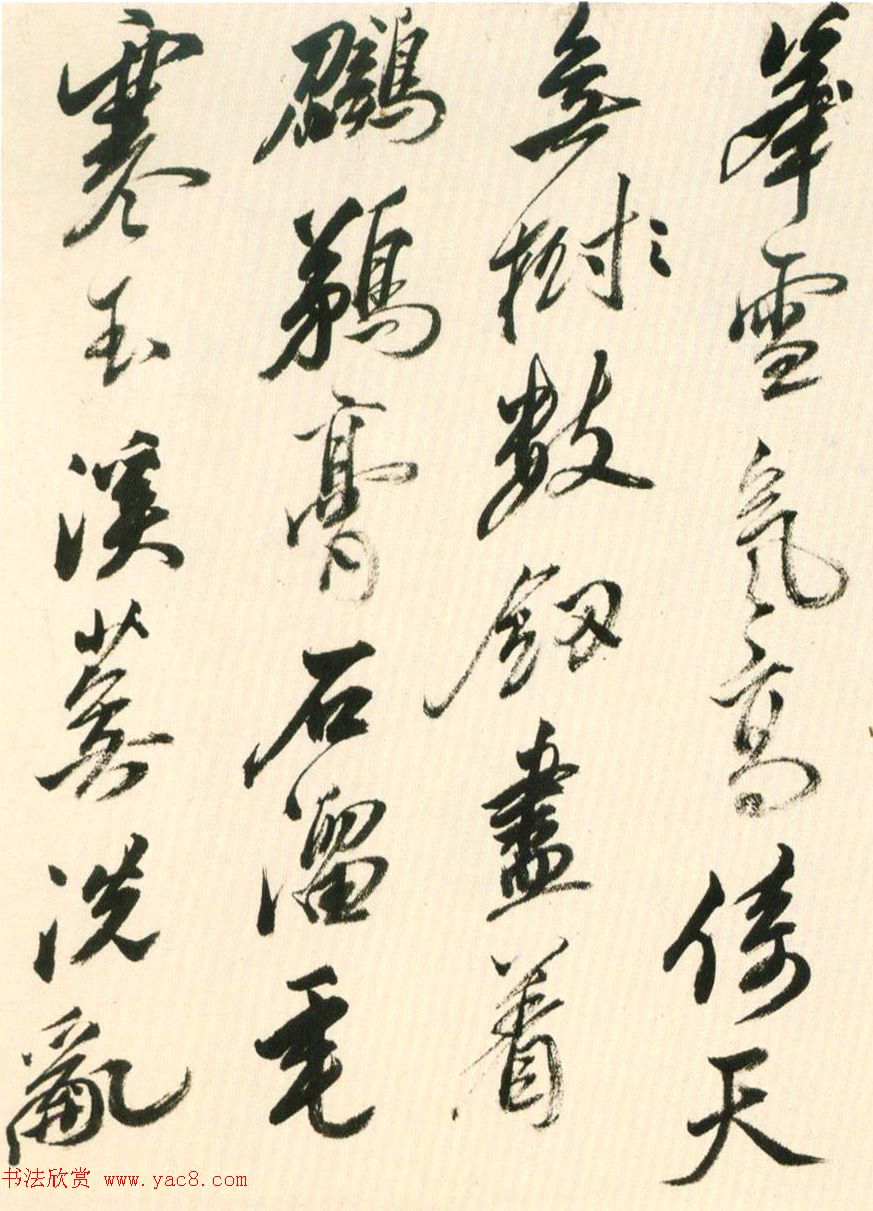 峯雪氣高倚天
無樹數釼盡着
鸊鵜膏石溜毛
寒玉溪洗亂
书法欣赏 www.yac8.com